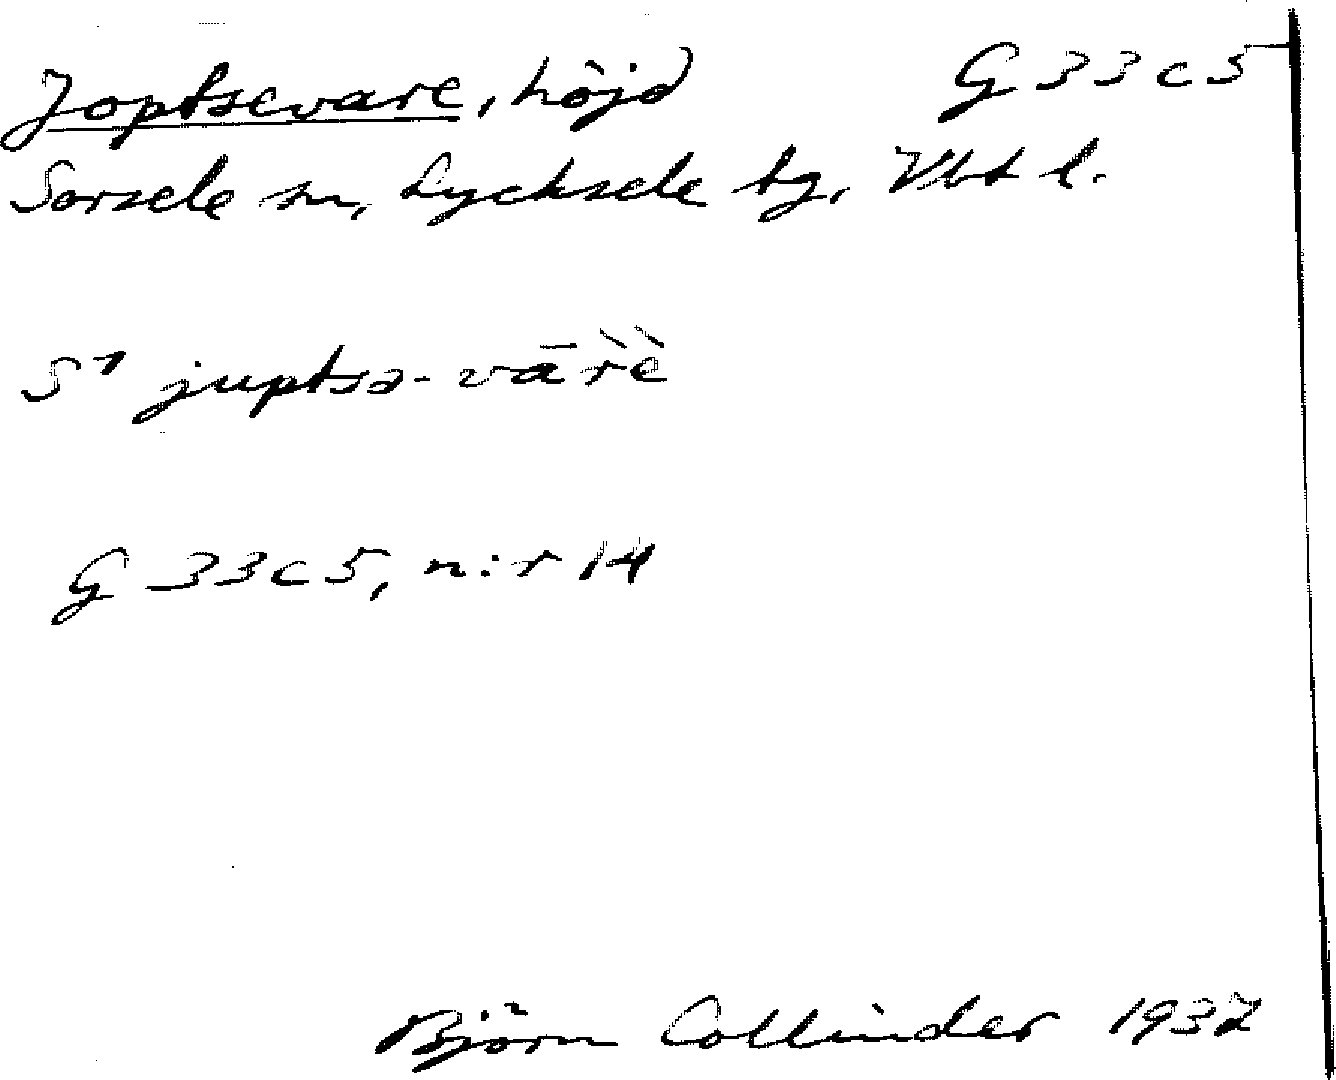 Joptsevare, höjd G 33 c 5
Sorsele sn, Lycksele tg, Vbt l.
S¹ juptsə-vār̀è
G 33 c 5, n:r 14
Björn Collinder 1937